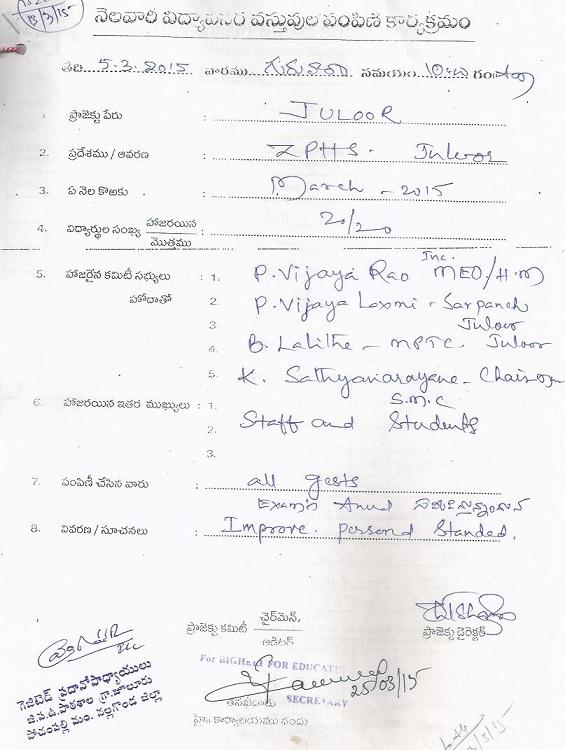 13/3/15
నెలవారీ విద్యావసర వస్తువుల పంపిణీ కార్యక్రమం
తేది 5-3-2015 వారము గురువారం సమయం
1. ప్రాజెక్టు పేరు : JULOOR
2. ప్రదేశము / ఆవరణ : ZPHS. Juloor
3. ఏ నెల కొఱకు : March - 2015
4. విద్యార్థుల సంఖ్య హాజరయిన / మొత్తము : 20/20
Inc.
5. హాజరైన కమిటీ సభ్యులు : 1. P. Vijaya Rao MEO/H.M
హోదాతో 2. P. Vijaya Laxmi - Sarpanch
Juloor
3.
4. B. Lalithe - MPTC Juloor
5. K. Sathyanarayana - Chairman
S.M.C
6. హాజరయిన ఇతర ముఖ్యులు : 1. Staff and Students
2.
3.
7. పంపిణీ చేసిన వారు : all gests
Exam's Anual
8. వివరణ / సూచనలు : Improve. personal Standed.
ప్రాజెక్టు కమిటీ ఛైర్మెన్,
ఆడిటర్
ప్రాజెక్టు డైరెక్టర్
For BIGHelp FOR EDUCATION
25/03/15
SECRETARY
గెజిటెడ్ ప్రధానోపాధ్యాయులు
జి.ప.ఉ.పాఠశాల గ్రా.జూలూరు
పోచంపల్లి మం. నల్లగొండ జిల్లా